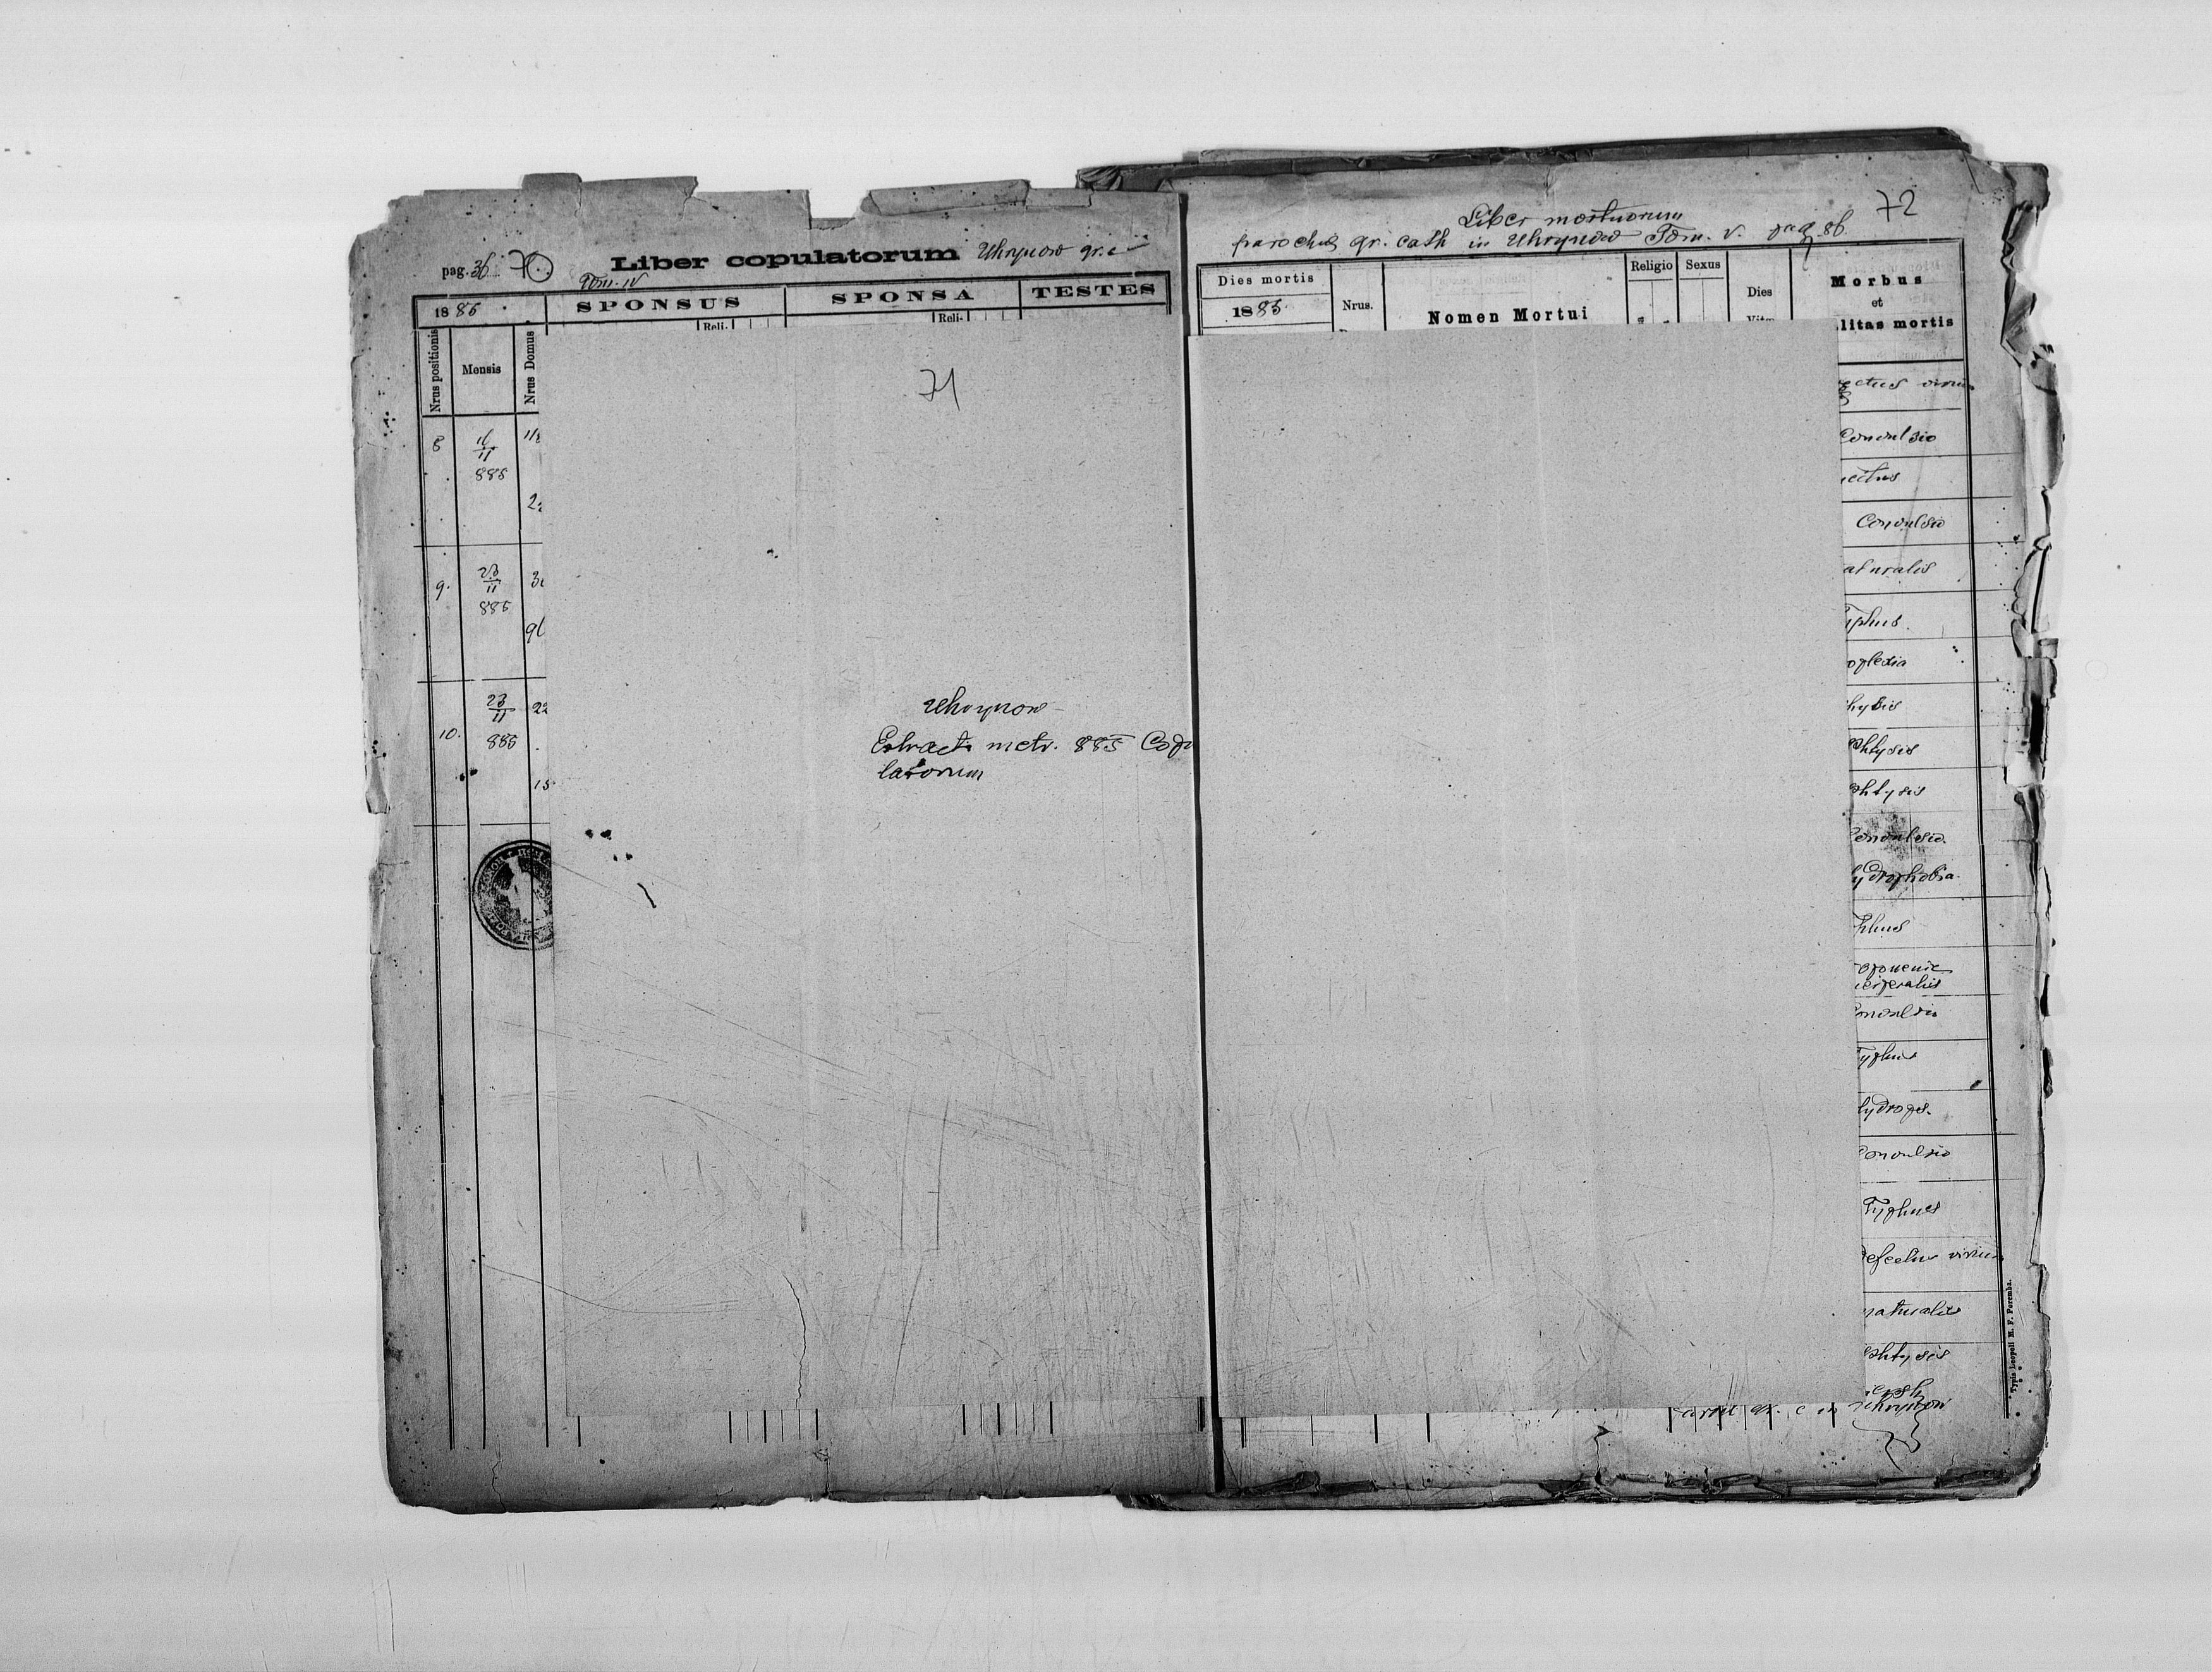 pag. 36 70.
Liber copulatorum Uhrynow gr. c
Tom. IV
1885
SPONSUS
SPONSA
TESTES
Reli-
Reli-
Nrus positionis
Mensis
Nrus Domus
8 16/11 885
9. 23/11 885
10. 23/11 885
71
Uhrynow
Extract. metr. 885 Copu
latorum
72
Liber mortuorum
parochiae gr. cath in Uhrynow Tom. V. pag. 86
Dies mortis
1885
Nrus.
Nomen Mortui
Religio
Sexus
Dies
Vitæ
Morbus
et
litas mortis
ectus viriu
Convulsio
Convulsio
aturalis
yphus.
oplexia
htysis
phtysis
phtysis
Convulsio.
ydrophobia.
erperalis
Convulsio
Typhus
ydrops.
Convulsio
Typhus
efectus viriu
naturalis
phtysis
gr. c in Uhrynow
Typis Leopoli M. F. Poremba.